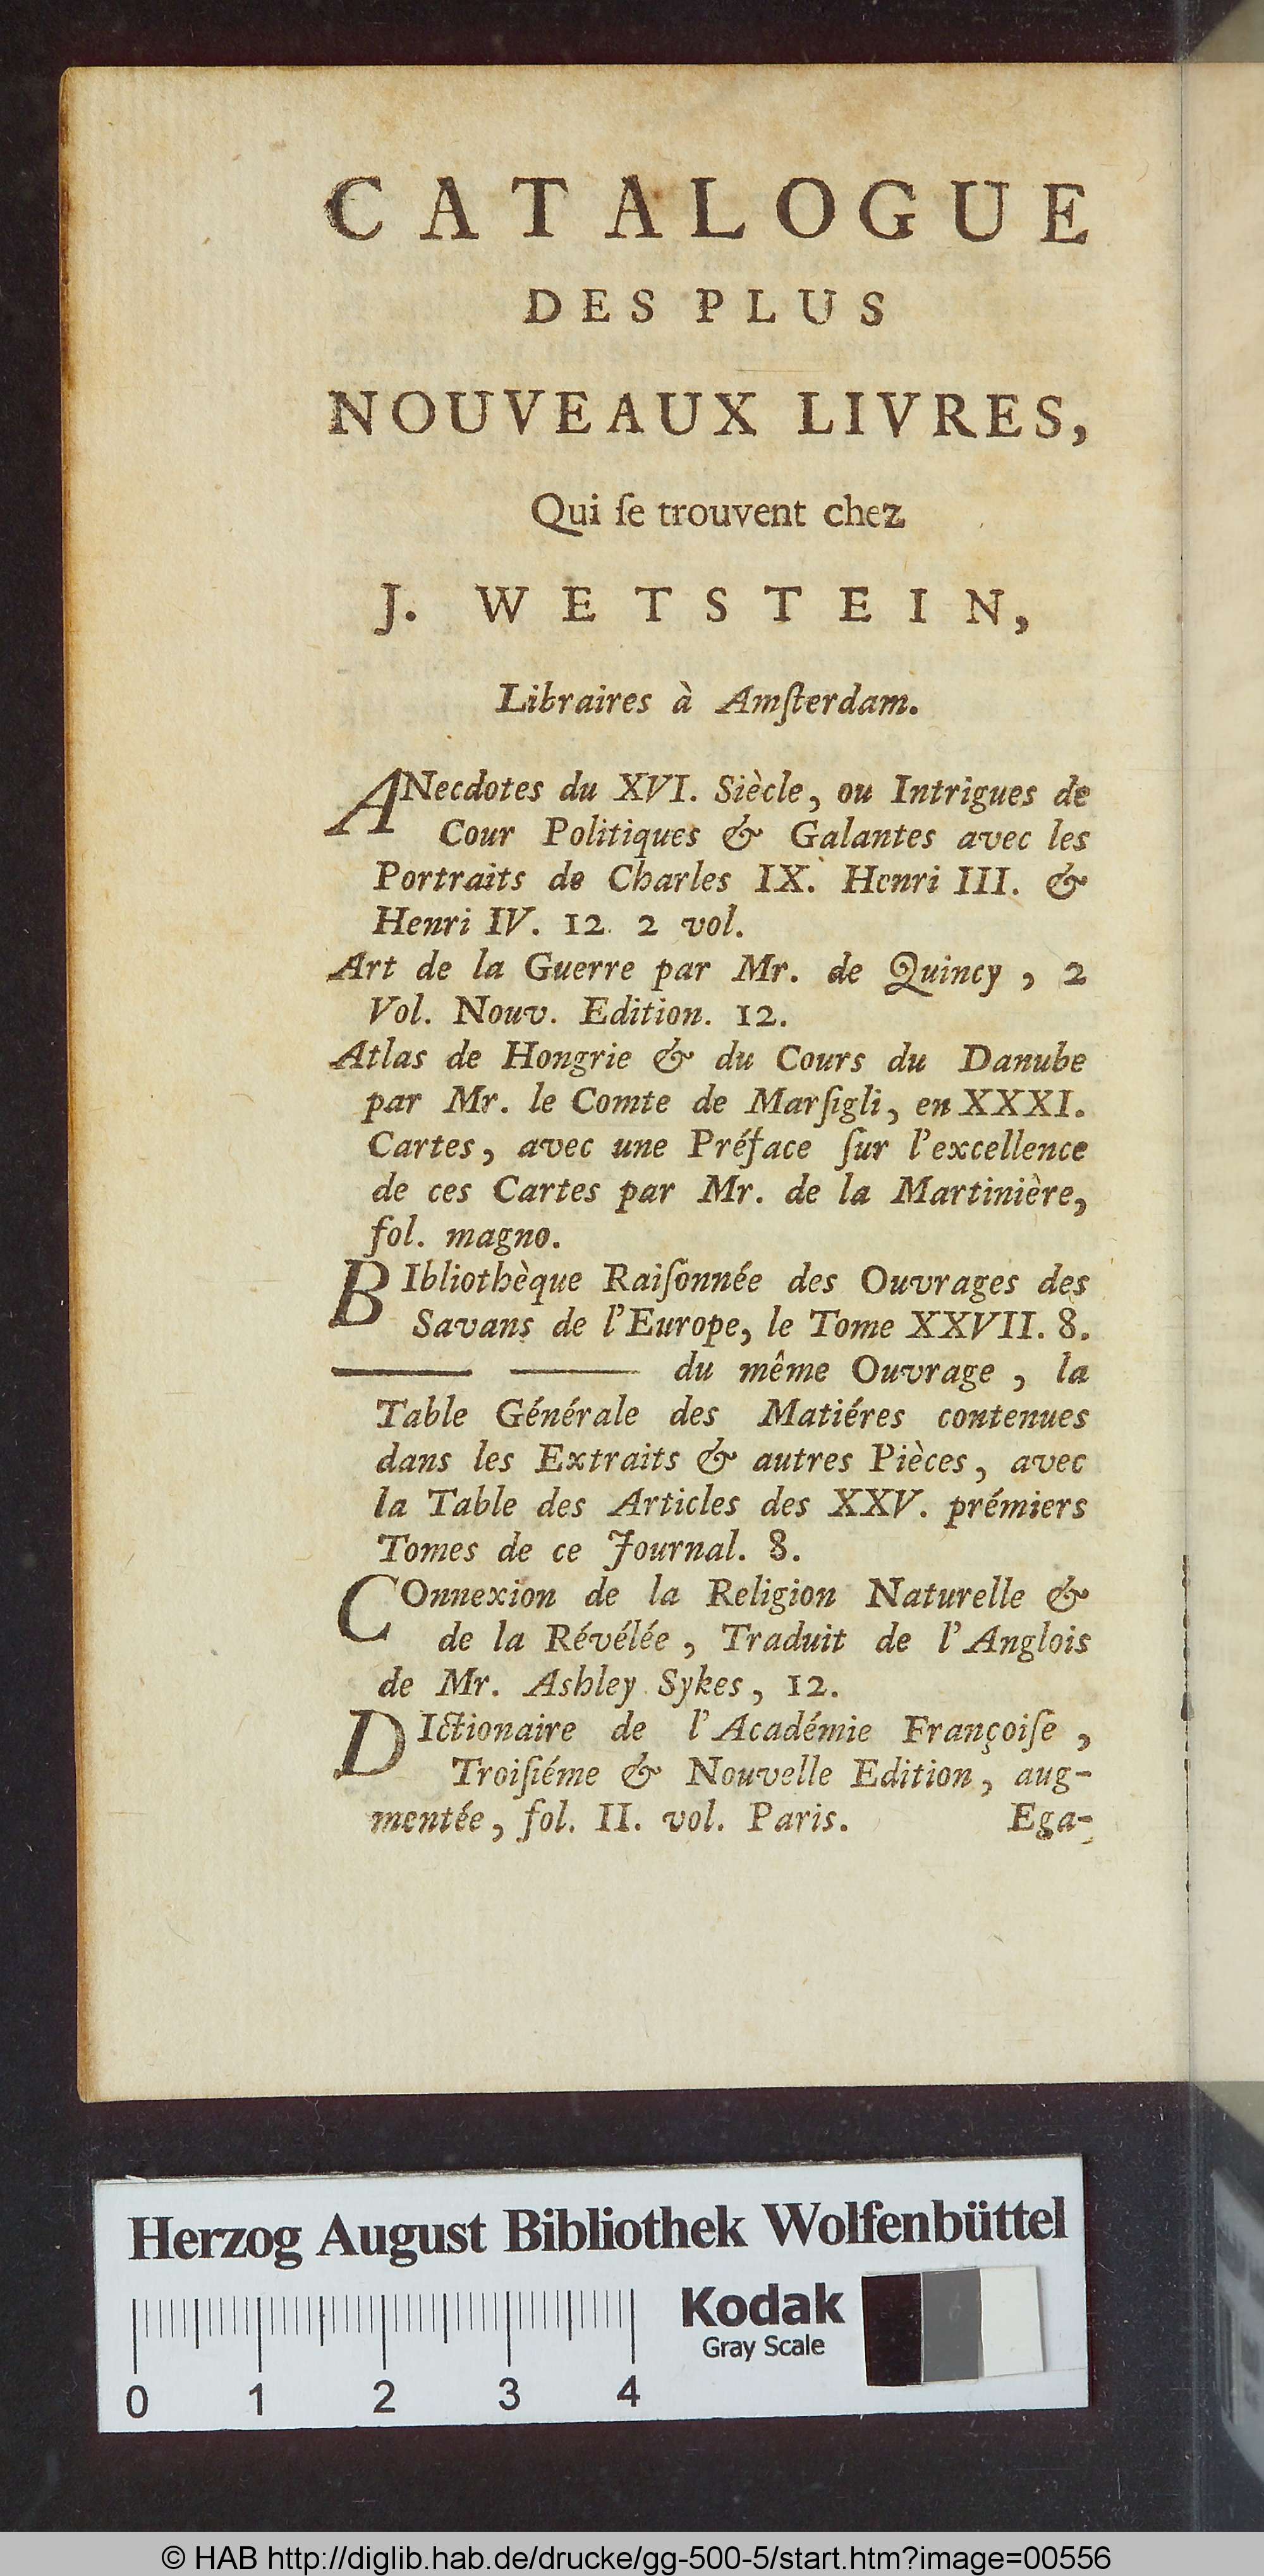 CATALOGUE
DES PLUS
NOUVEAUX LIVRES,
Qui ſe trouvent chez
J. WETSTEIN,
Libraires à Amſterdam.
ANecdotes du XVI. Siècle, ou Intrigues de
Cour Politiques & Galantes avec les
Portraits de Charles IX. Henri III. &
Henri IV. 12. 2 vol.
Art de la Guerre par Mr. de Quincy, 2
Vol. Nouv. Edition. 12.
Atlas de Hongrie & du Cours du Danube
par Mr. le Comte de Marſigli, en XXXI.
Cartes, avec une Préface ſur l'excellence
de ces Cartes par Mr. de la Martinière,
fol. magno.
BIbliothèque Raiſonnée des Ouvrages des
Savans de l'Europe, le Tome XXVII. 8.
—— —— du même Ouvrage, la
Table Générale des Matiéres contenues
dans les Extraits & autres Pièces, avec
la Table des Articles des XXV. prémiers
Tomes de ce Journal. 8.
COnnexion de la Religion Naturelle &
de la Révélée, Traduit de l'Anglois
de Mr. Ashley Sykes, 12.
DIctionaire de l'Académie Françoiſe,
Troiſiéme & Nouvelle Edition, aug-
mentée, fol. II. vol. Paris. Ega-
Herzog August Bibliothek Wolfenbüttel
Kodak
Gray Scale
0 1 2 3 4
© HAB http://diglib.hab.de/drucke/gg-500-5/start.htm?image=00556